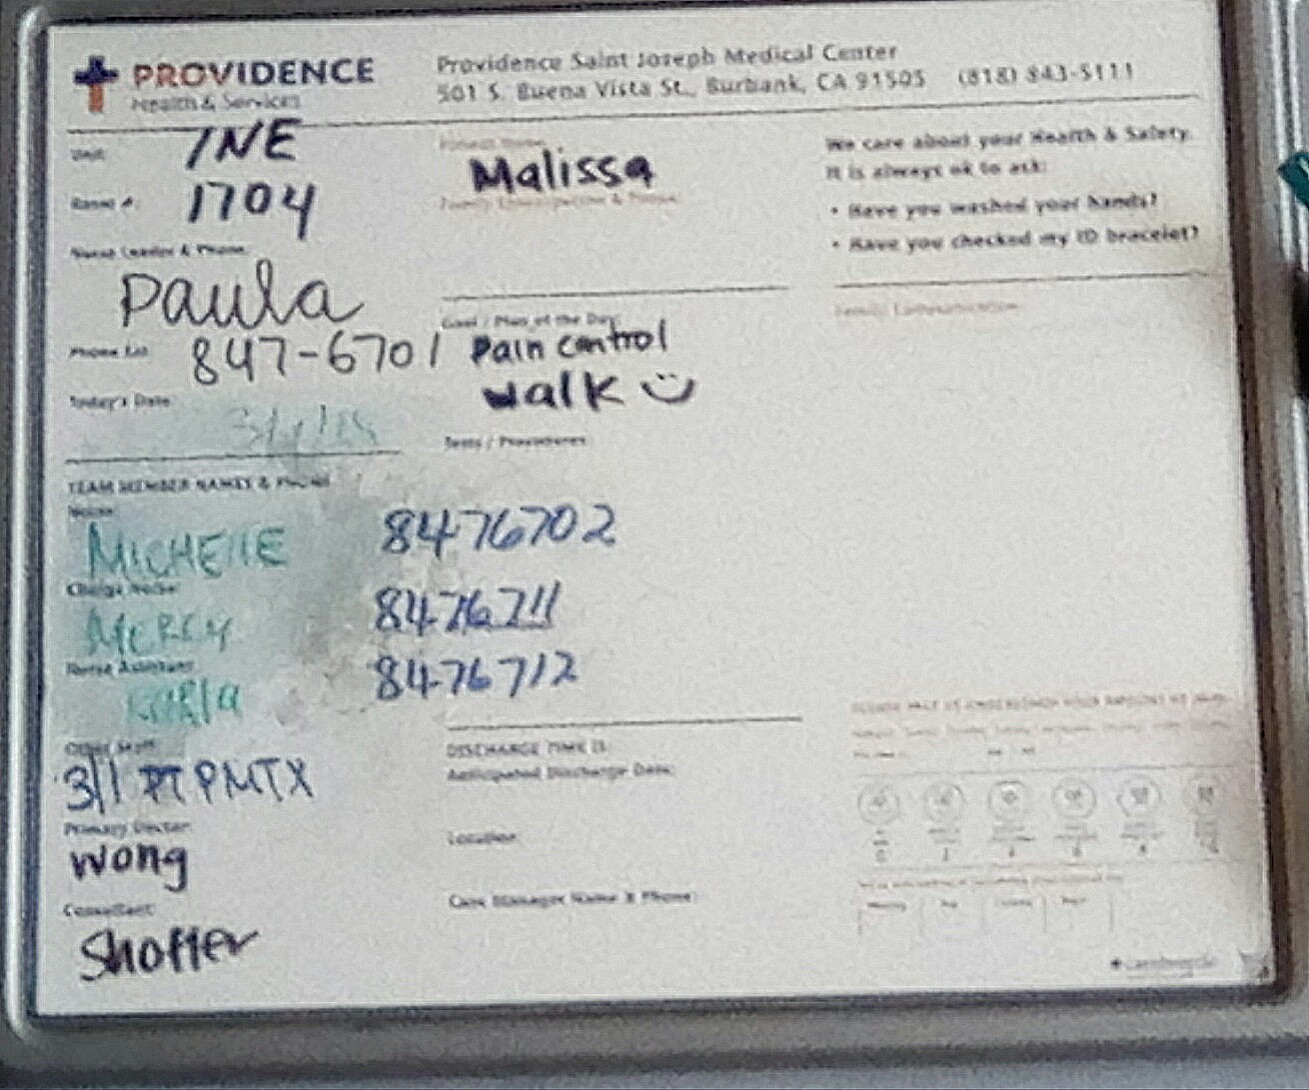 PROVIDENCE
Health & Services
Providence Saint Joseph Medical Center
501 S. Buena Vista St., Burbank, CA 91505 (818) 843-5111
Unit: 1NE
Room #: 1704
Nurse Leader & Phone:
Paula
Phone Ext: 847-6701
Today's Date:
Patient Name:
Malissa
We care about your Health & Safety.
It is always ok to ask:
• Have you washed your hands?
• Have you checked my ID bracelet?
Goal / Plan of the Day:
Pain control
walk
Tests / Procedures:
Family Communication:
TEAM MEMBER NAMES & PHONE
Nurse:
MICHEllE 8476702
Charge Nurse:
MERCY 8476711
Nurse Assistant:
KARLA 8476712
Other Staff:
3/1 PT PMTX
Primary Doctor:
Wong
Consultant:
DISCHARGE TIME IS:
Anticipated Discharge Date:
Location:
Case Manager Name & Phone: